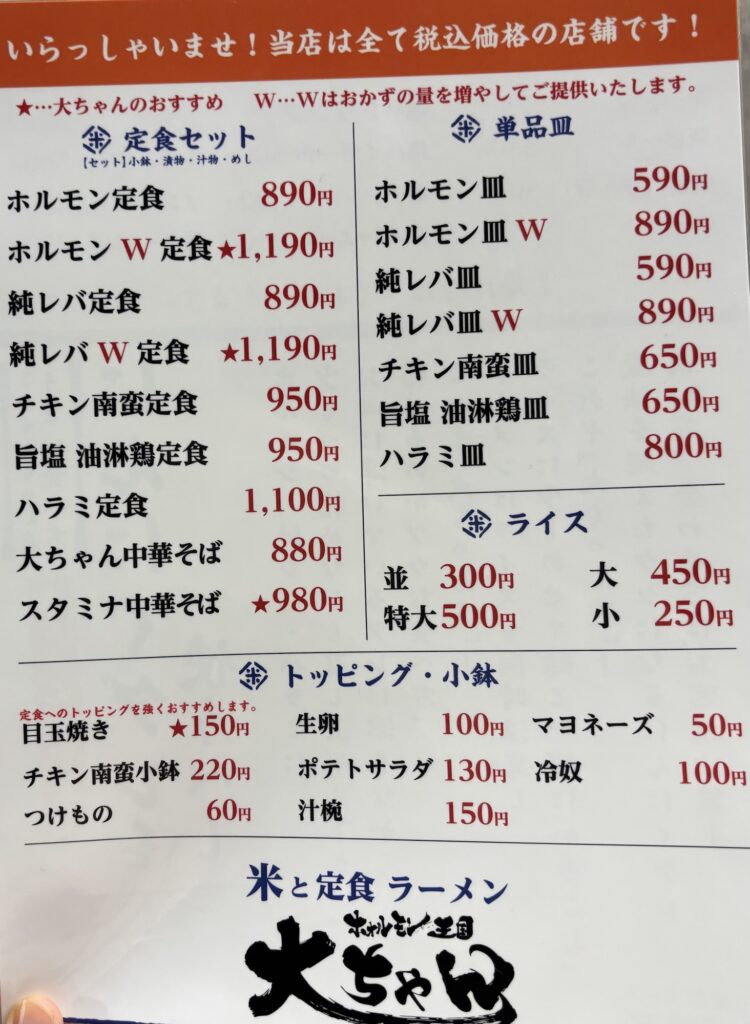 いらっしゃいませ！当店は全て税込価格の店舗です！
★…大ちゃんのおすすめ　W…Wはおかずの量を増やしてご提供いたします。
米 定食セット
【セット】小鉢・漬物・汁物・めし
ホルモン定食 890円
ホルモン W 定食 ★1,190円
純レバ定食 890円
純レバ W 定食 ★1,190円
チキン南蛮定食 950円
旨塩 油淋鶏定食 950円
ハラミ定食 1,100円
大ちゃん中華そば 880円
スタミナ中華そば ★980円
米 単品皿
ホルモン皿 590円
ホルモン皿 W 890円
純レバ皿 590円
純レバ皿 W 890円
チキン南蛮皿 650円
旨塩 油淋鶏皿 650円
ハラミ皿 800円
米 ライス
並 300円 大 450円
特大 500円 小 250円
米 トッピング・小鉢
定食へのトッピングを強くおすすめします。
目玉焼き ★150円 生卵 100円 マヨネーズ 50円
チキン南蛮小鉢 220円 ポテトサラダ 130円 冷奴 100円
つけもの 60円 汁椀 150円
米と定食 ラーメン
ホルモン王国
大ちゃん